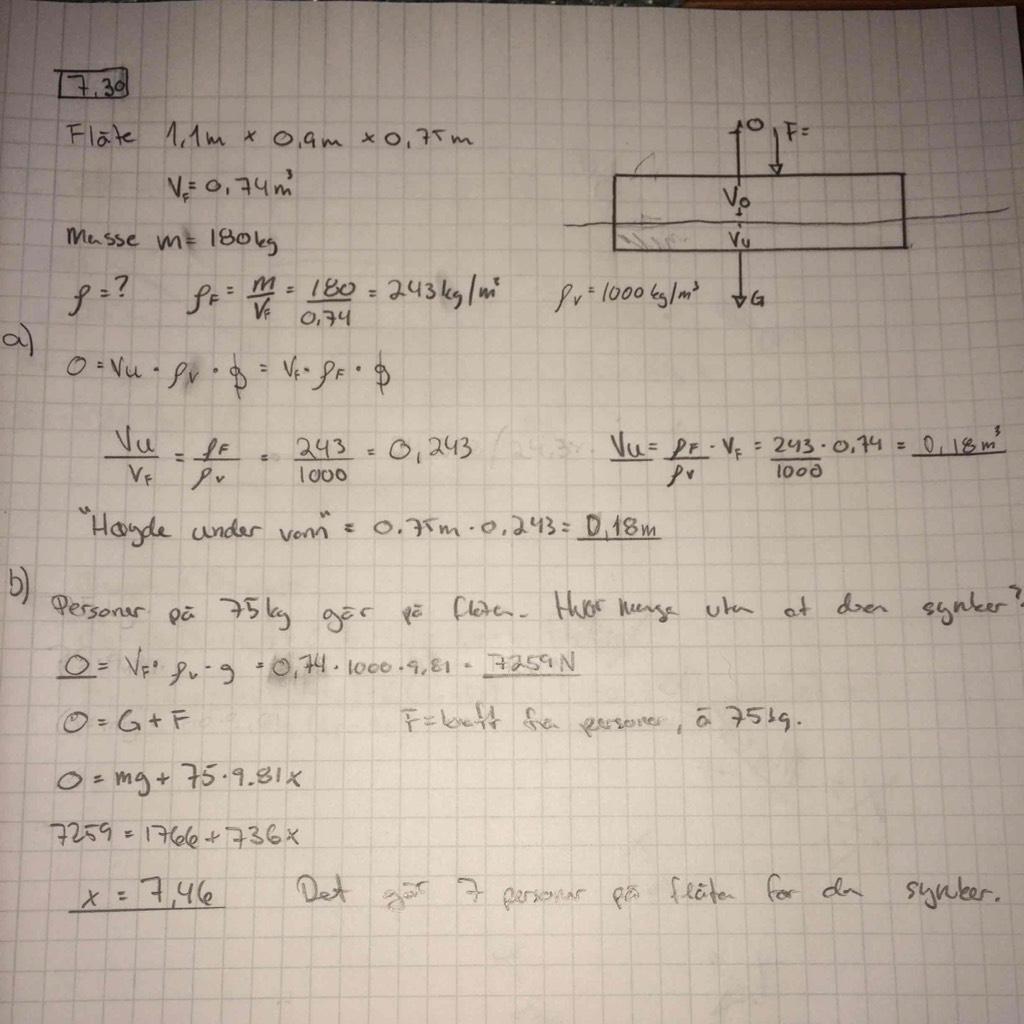 7.30
Flåte 1,1m × 0,9m × 0,75m
V_F = 0,74m³
Masse m = 180kg
ρ = ? ρ_F = m/V_F = 180/0,74 = 243kg/m³ ρ_v = 1000kg/m³
O F=
V_o
V_u
G
a)
O = Vu · ρ_v · g = V_F · ρ_F · g
Vu/V_F = ρ_F/ρ_v = 243/1000 = 0,243 Vu = ρ_F/ρ_v · V_F = 243/1000 · 0,74 = 0,18m³
"Høyde under vann" = 0.75m · 0,243 = 0,18m
b)
Personer på 75kg går på flåten. Hvor mange uten at den synker?
O = V_F · ρ_v · g = 0,74 · 1000 · 9,81 = 7259N
O = G + F F = kraft fra personer, à 75kg.
O = mg + 75 · 9.81x
7259 = 1766 + 736x
x = 7,46 Det går 7 personer på flåten før den synker.